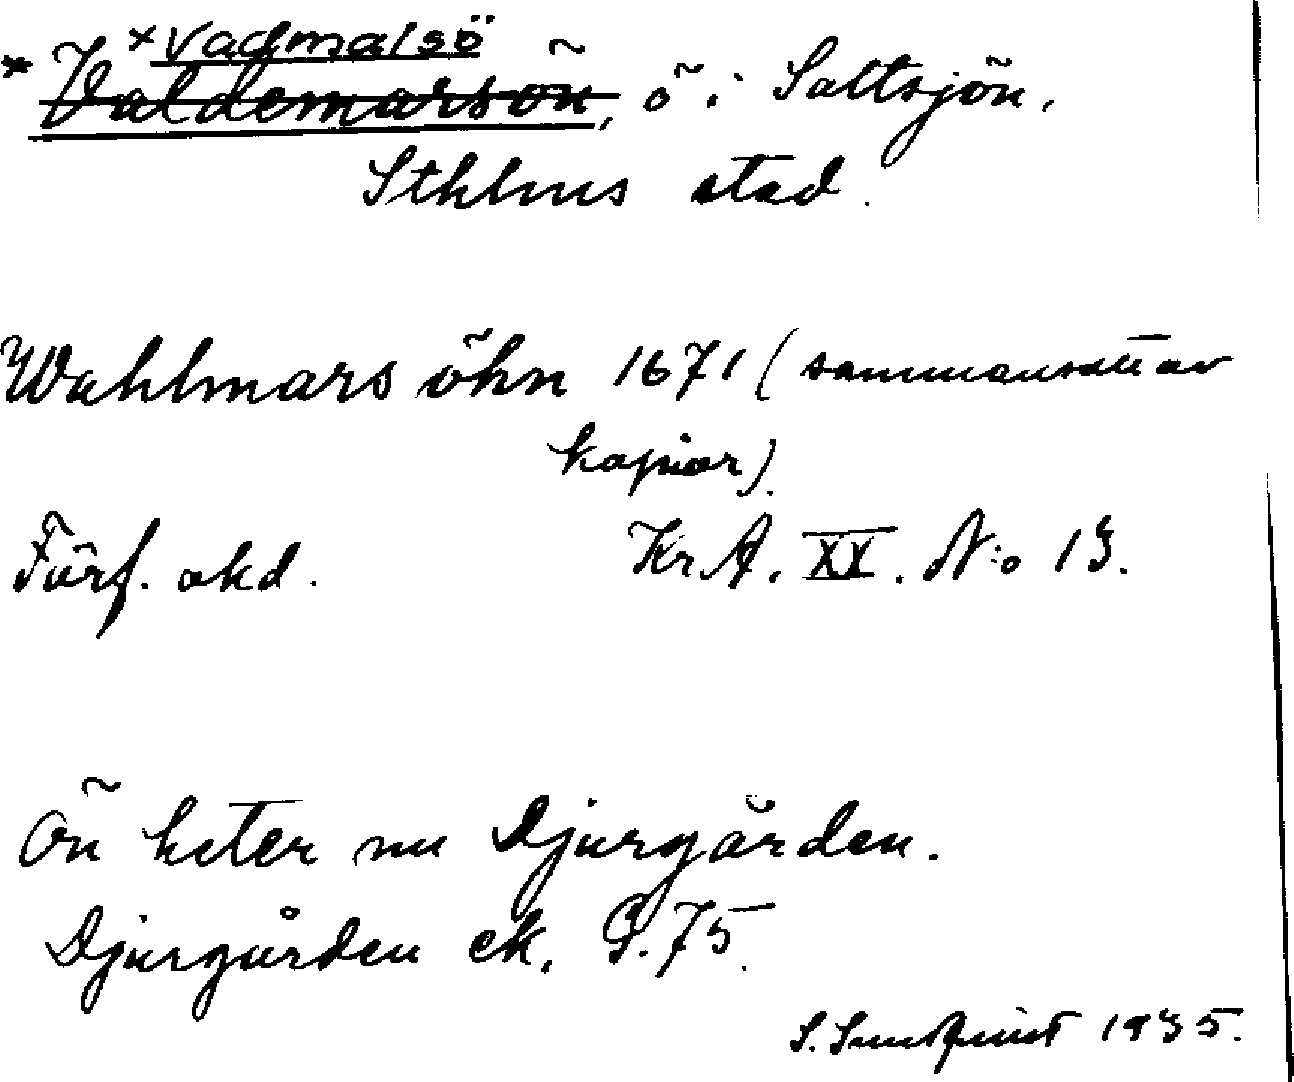 × Vadmalsö
* Valdemarsön, ö i Saltsjön,
Sthlms stad.
Wahlmars öhn 1671 (sammansatt av
kopior).
Förf. okd. Kr A. XX. N:o 13.
Ön heter nu Djurgården.
Djurgården ek. G. 75.
S. Sundquist 1935.